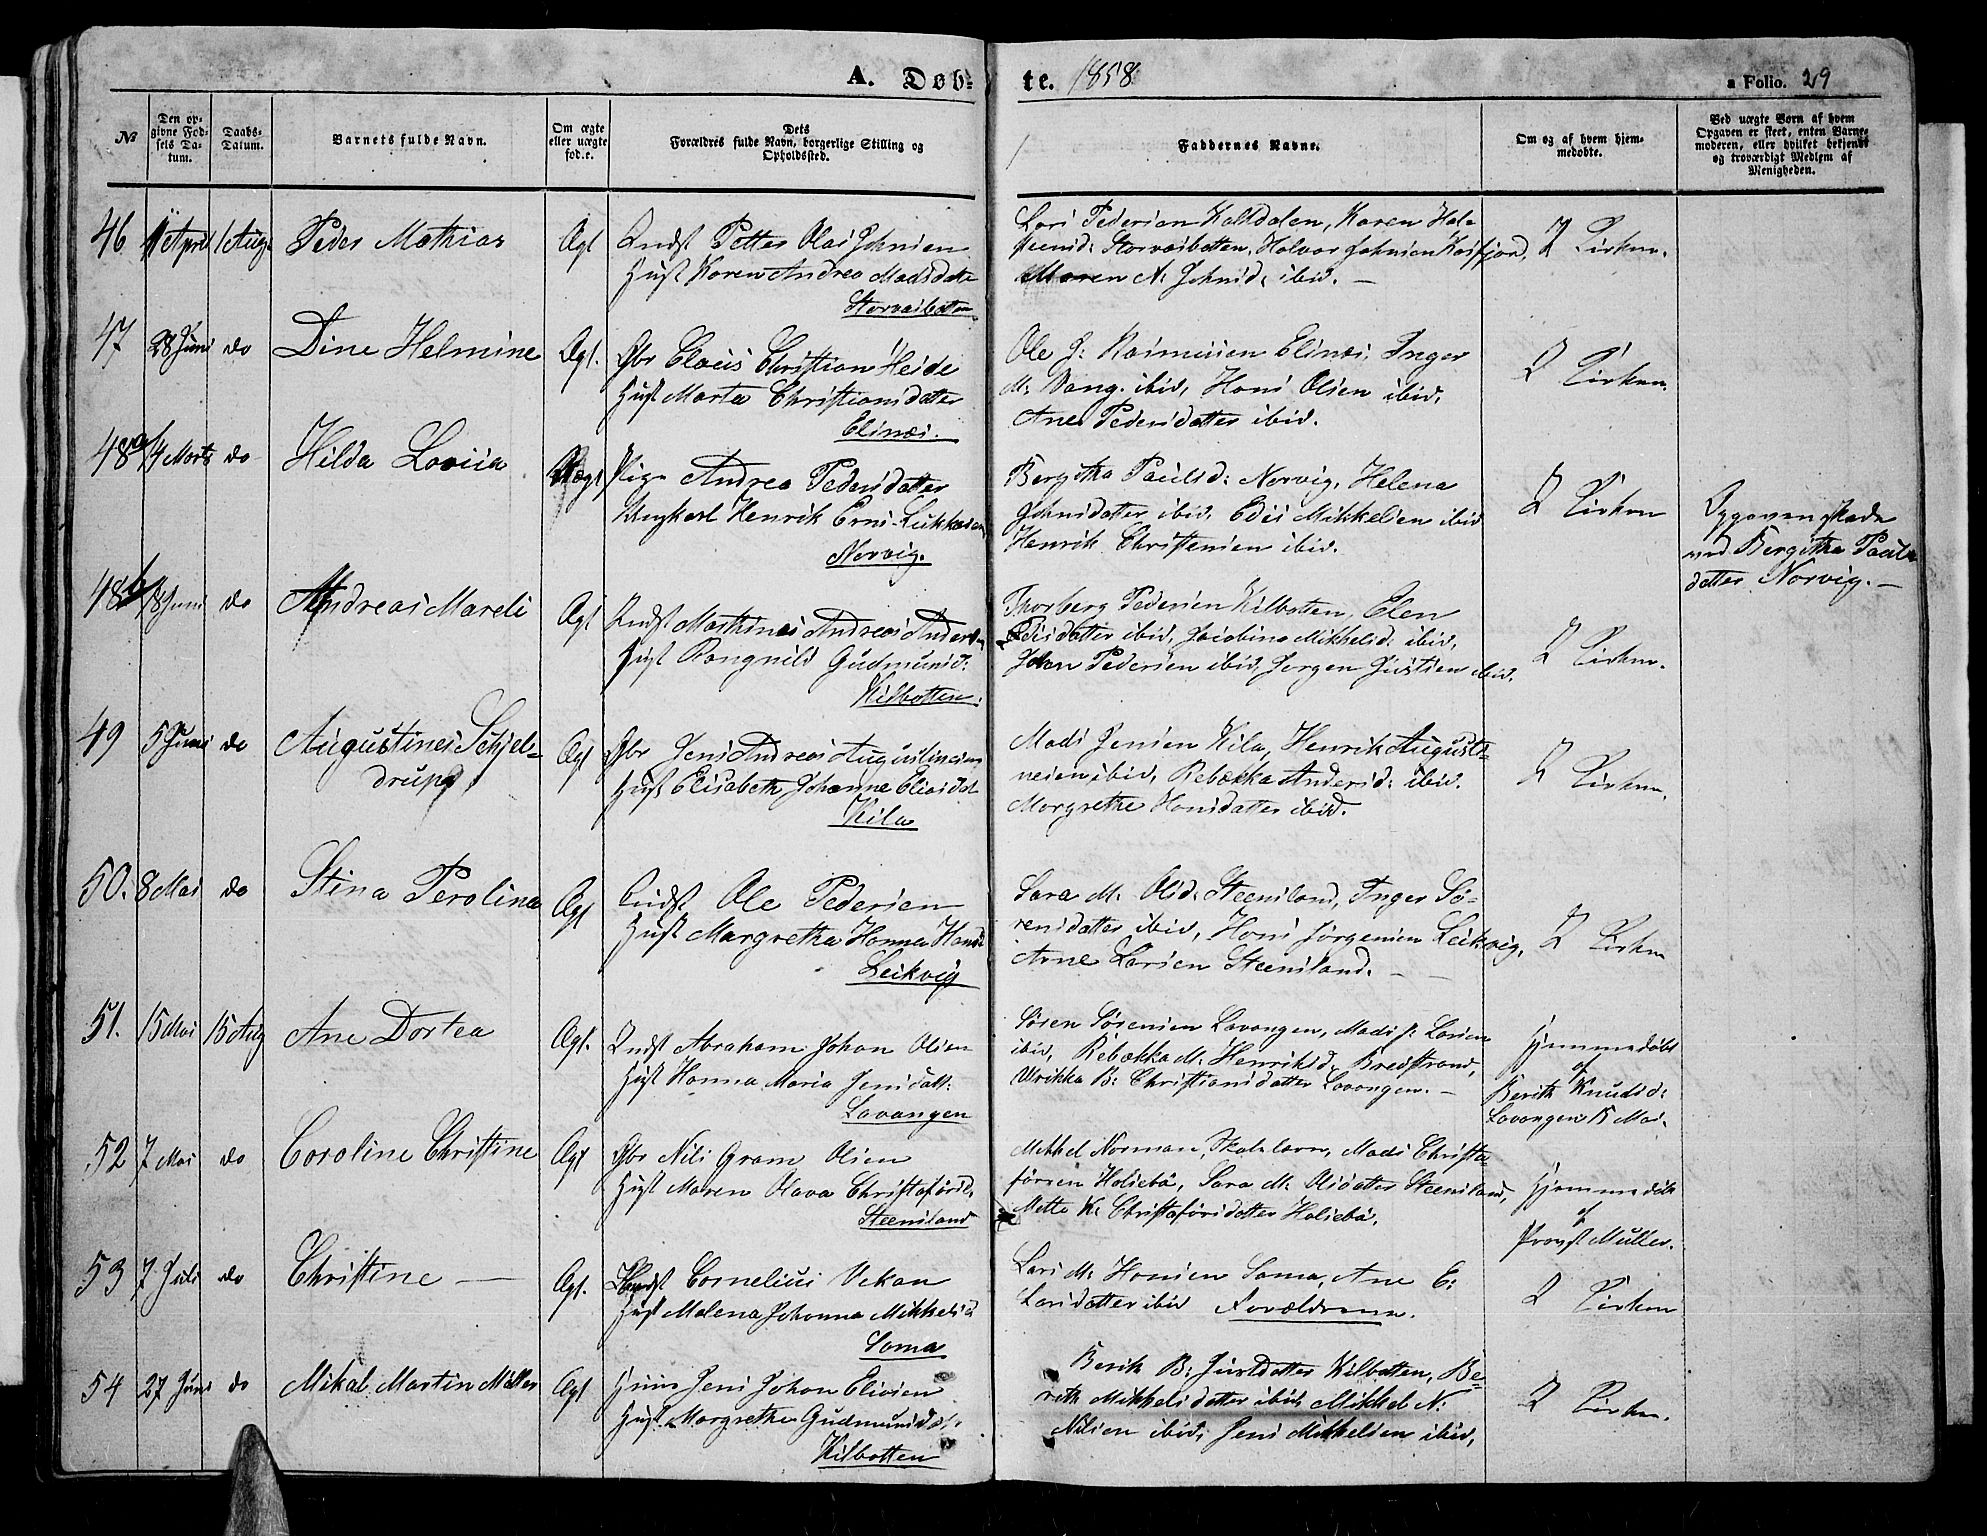 A. Døb-
te. 1858
a Folio. 29
№
Den op-
givne Fød-
sels Da-
tum.
Daabs-
Datum.
Barnets fulde Navn.
Om ægte
eller uægte
fød.e.
Dets
Forældres fulde Navn, borgerlige Stilling og
Opholdssted.
Faddernes Navne.
Om og af hvem hjem-
medøbte.
Ved uægte Børn af hvem
Opgaven er skeet, enten Barne-
moderen, eller hvilket bekjendt
og troværdigt Medlem af
Menigheden.
46 April 1 Aug. Peder Mathias Ægt
Indst Petter Olai Johnsen
Hust Karen Andrea Madsdatter
Storvasbotten
Lars Pedersen
Storvasbotten, Halvor Johnsen Kasfjord,
Maren N. Johnsd. ibid. —
I Kirken.
47 28 Juni do Dine Helmine Ægt.
Gbr Claus Christian Heide
Hust Marta Christiansdatter
Elinæs.
Ole J. Rasmussen Elinæs, Inger
M. Bang. ibid, Hans Olsen ibid,
Ane Pedersdatter ibid.
I Kirken.
48a 14 Marts do Hilda Lovisa Uægt
Pige Andrea Pedersdatter
Ungkarl Henrik Lukkasen
Norvig.
Bergitha Paulsd. Norvig, Helena
Johnsdatter ibid, Edis Mikkelsen ibid
Henrik Christensen ibid.
I Kirken
Opgaven skede
ved Bergitha Pauls
datter Norvig. —
48b 8 Juni do Andreas Mareli Ægt
Indst Marthines Andreas Anders
Hust Rangnild Gudmunsd.
Kilbotten.
Thorberg Pedersen Kilbotten, Elen
Edisdatter ibid, Jacobina Mikkelsd. ibid,
Johan Pedersen ibid, Jørgen Justsen ibid.
I Kirken.
49 5 Juni do Augustines Schjel-
drup Ægt
Gbr Jens Andreas Augustinesen
Hust Elisabeth Johanne Eliasdat
Kila
Mads Jensen Kila, Henrik Augusti-
nesen ibid, Rebækka Andersd. ibid.
Margrethe Hansdatter ibid.
I Kirken.
50. 8 Mai do Stina Perolina Ægt
Indst Ole Pedersen
Hust Margretha Hanna Hansd
Leikvig
Sara M. Olsd. Steensland, Inger Sø-
rensdatter ibid, Hans Jørgensen Leikvig,
Arne Larsen Steensland. —
I Kirken
51. 15 Mai 15 Aug Ane Dortea Ægt.
Indst Abraham Johan Olsen
Hust Hanna Maria Jensdatt.
Lavangen
Søren Sørensen Lavangen, Mads P. Larsen
ibid, Rebækka M. Henriksd. Bredstrand,
Ulrikka B. Christiansdatter Lavangen. —
Hjemmedøbt
af
Berith Knudsd.
Lavangen 15 Mai.
52 7 Mai do Caroline Christine Ægt
Gbr Nils Gram Olsen
Hust Maren Olava Christaførsd.
Steensland
Mikkel Norman, Mads Christa-
førsen Halsebø, Sara M. Olsdatter Steensland,
Mette K. Christaførsdatter Halsebø.
Hjemmedøbt
af
Provst Müller.
53 7 Juli do Christine — Ægt.
Indst Cornelius Vekan
Hust Malena Johanna Mikkelsd
Sama
Lars M. Hansen Sama, Ane E.
Larsdatter ibid Forældrene.
I Kirken
54 27 Juni do Mikal Martin Müller Ægt
Huus Jens Johan Eliasen
Hust Margrethe Gudmunsdat.
Kilbotten
Berith B. Justdatter Kilbotten, Be-
reth Mikkelsdatter ibid, Mikkel N.
Nilsen ibid, Jens Mikkelsen ibid,
I Kirken.